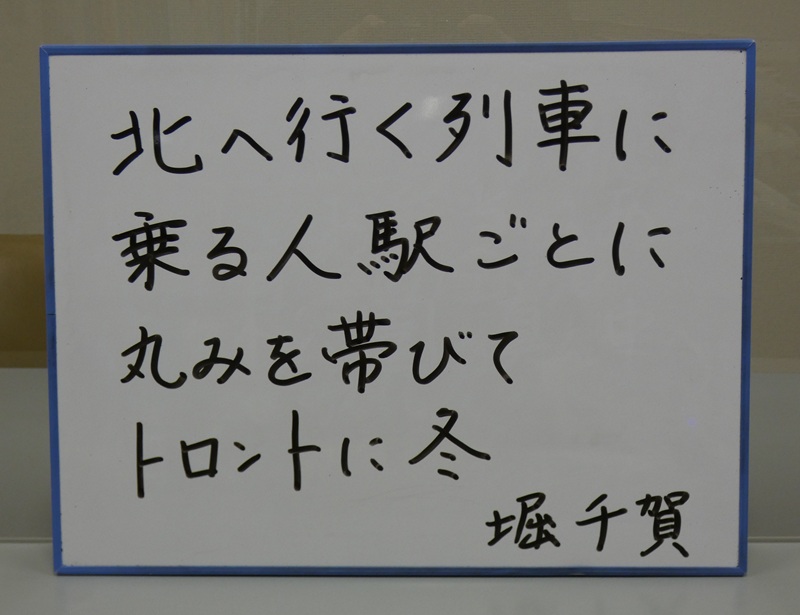 北へ行く列車に
乗る人駅ごとに
丸みを帯びて
トロントに冬
堀千賀